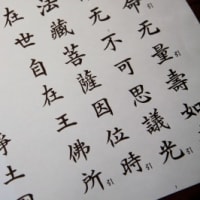 命引无量壽如
无不可思議光引
法藏菩薩因位時引
在世自在王佛所引
淨土